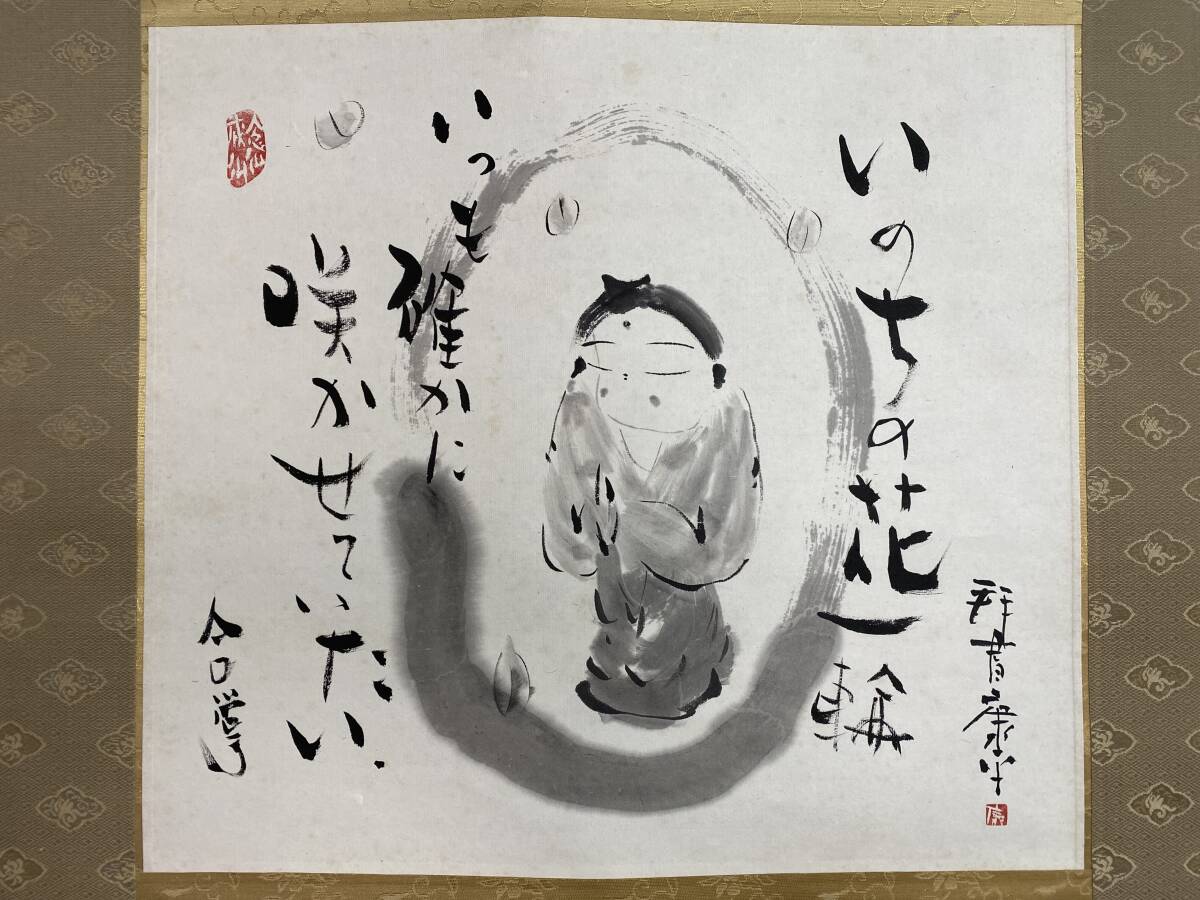 いのちの花一輪
いつも確かに
咲かせていたい
合掌
群青康平